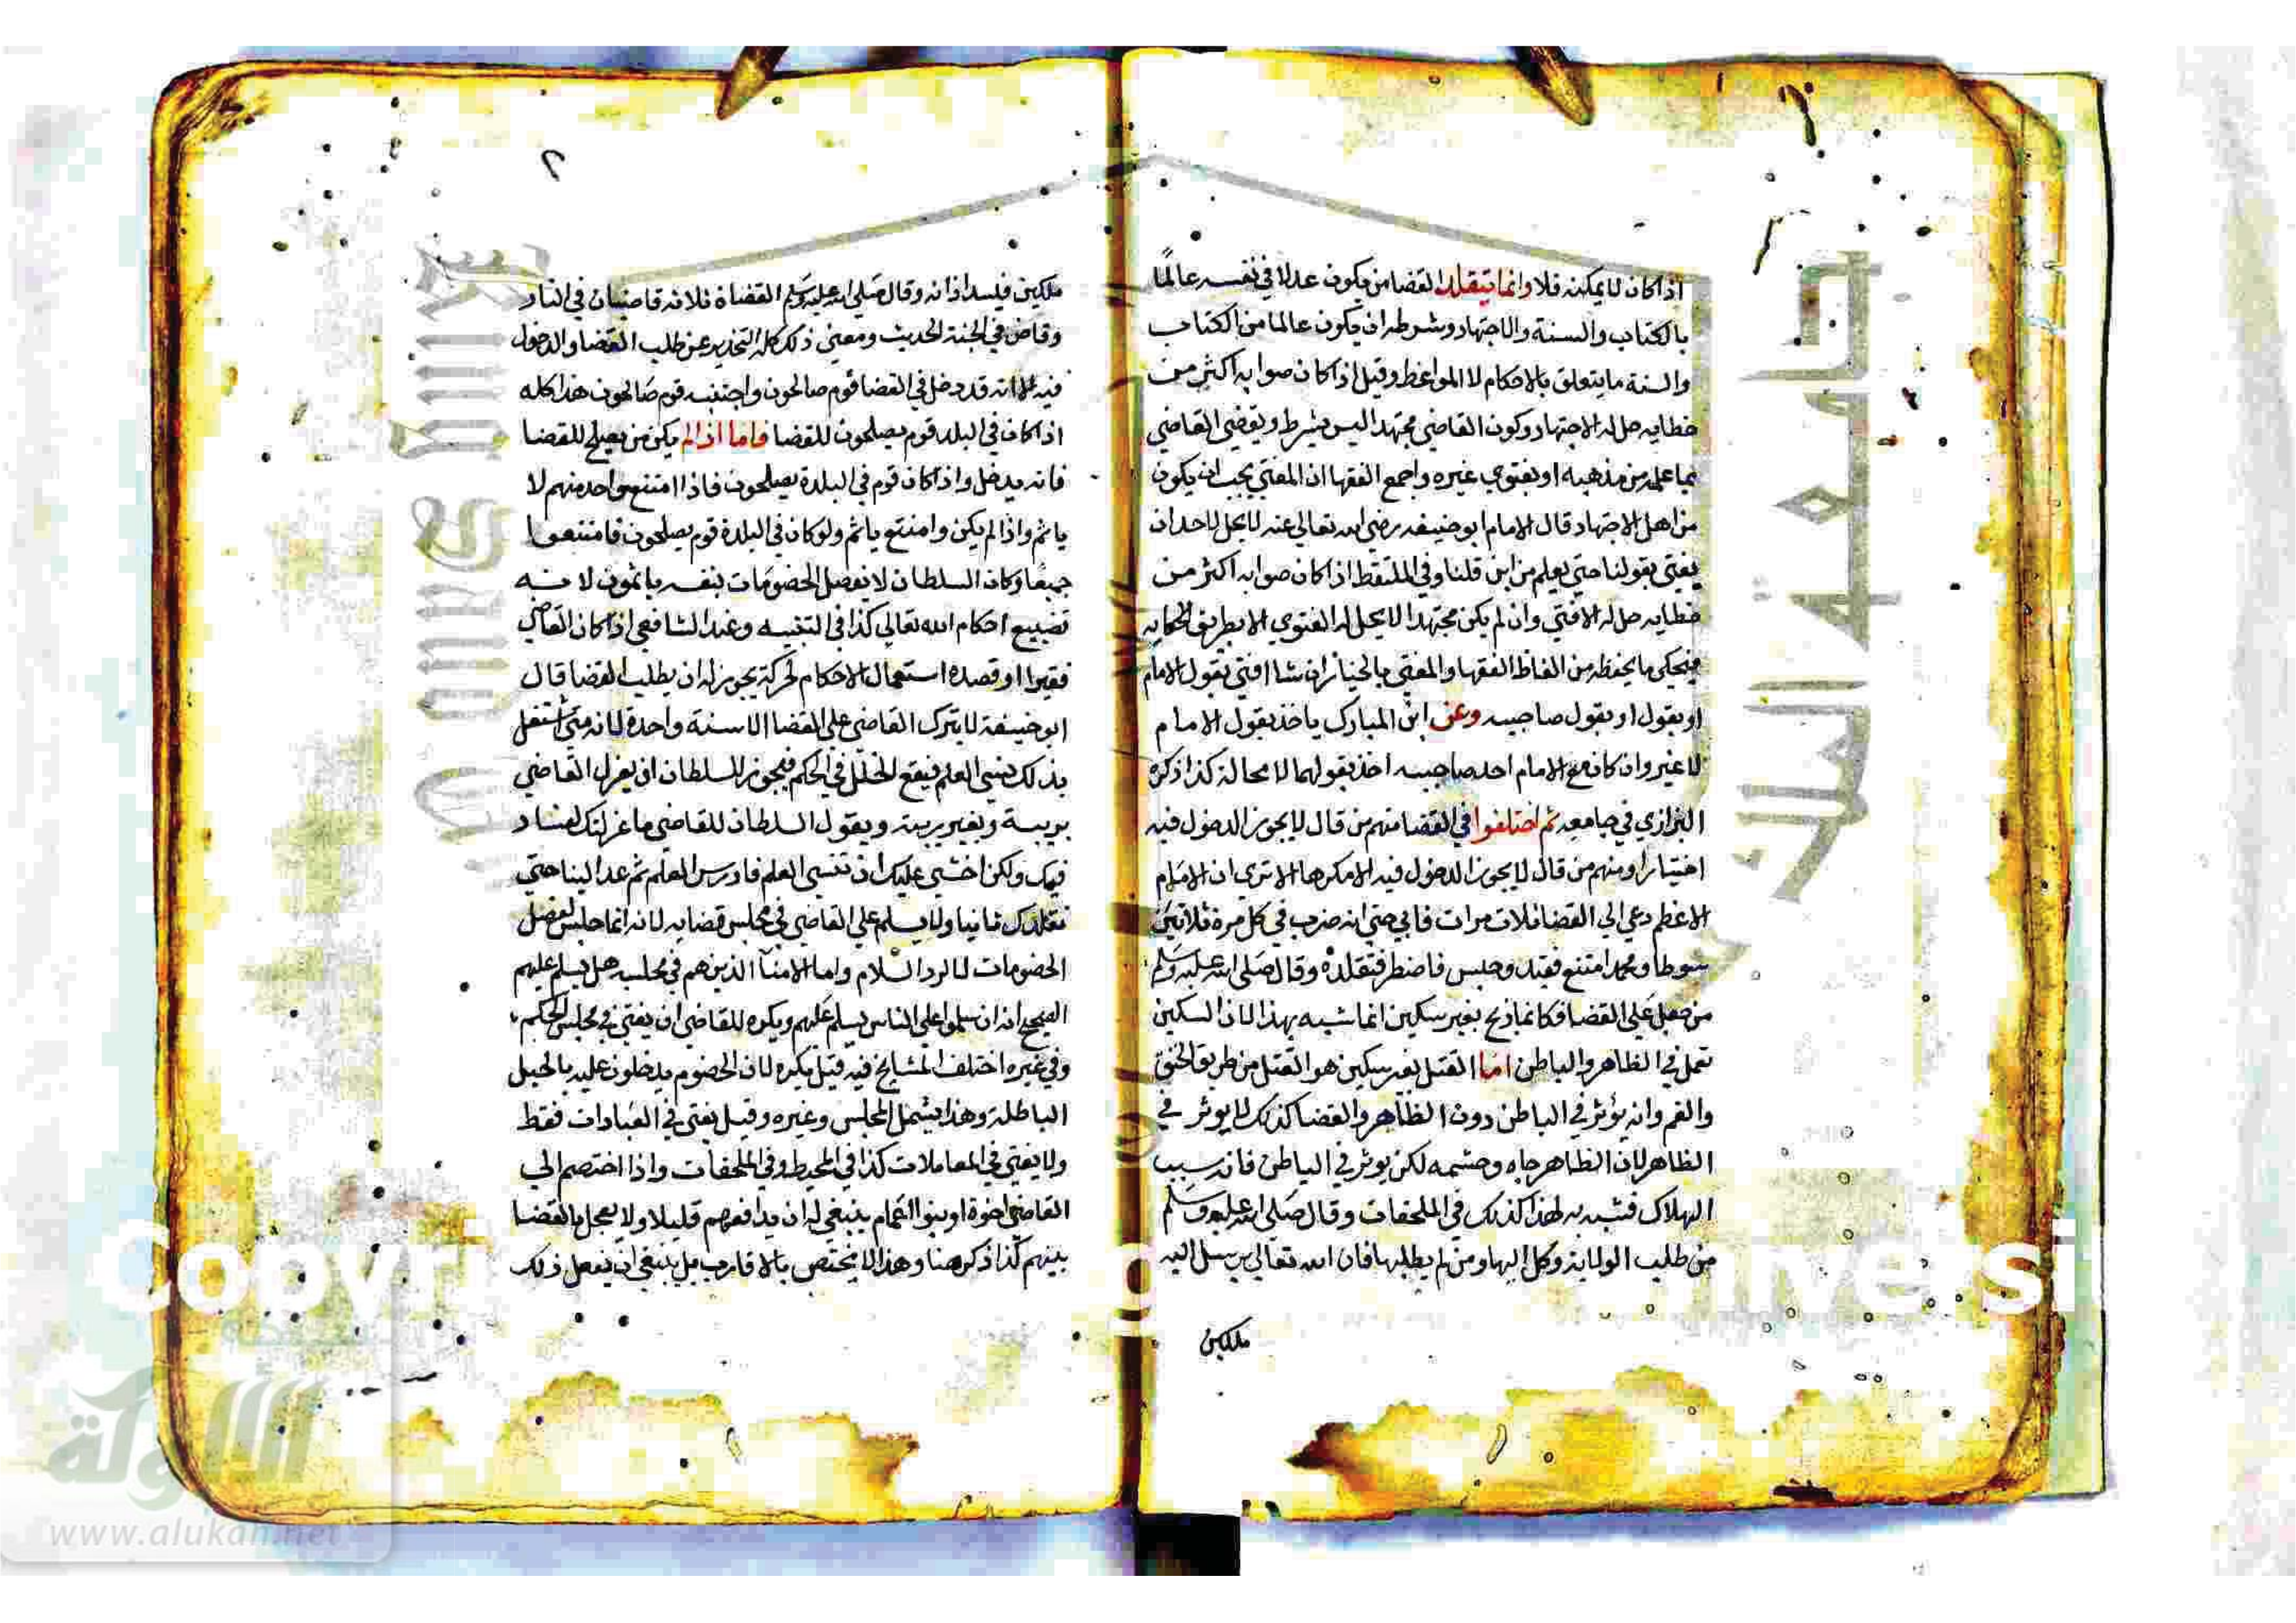 اذا كان لا يمكنه فلا وانما يتقلد القضا من يكون عدلا في نفسه عالمًا
بالكتاب والسنة والاجتهاد وشرطه ان يكون عالما من الكتاب
والسنة ما يتعلق بالاحكام لا المواعظ وقيل اذا كان صوابه اكثر من
خطايه حل له الاجتهاد وكون القاضي مجتهدا ليس بشرط ويقضي القاضي
بما علم من مذهبه او بفتوي غيره واجمع الفقها ان المفتي يجب ان يكون
من اهل الاجتهاد قال الامام ابو حنيفه رضي الله تعالي عنه لا يحل لاحد ان
يفتي بقولنا حتي يعلم من اين قلنا وفي الملتقط اذا كان صوابه اكثر من
خطايه حل له الافتي وان لم يكن مجتهدا لا يحل له الفتوي الا بطريق الحكايه
فيحكي ما يحفظه من الفاظ الفقها والمفتي بالخيار ان شا افتي بقول الامام
او بقول او بقول صاحبيه وعن ابن المبارك ياخذ بقول الامام
لا غير وان كان مع الامام احد صاحبيه اخذ بقولهما لا محالة كذا ذكره
البزازي في جامعه ثم اختلفوا في القضا منهم من قال لا يجوز الدخول فيه
اختيارا ومنهم من قال لا يجوز الدخول فيه الا مكرها الا تري ان الامام
الاعظم دعي الي القضا ثلاث مرات فابي حتي انه ضرب في كل مرة ثلاثين
سوطا ومحمد امتنع فقيد وحبس فاضطر فتقلده وقال صلي الله عليه وسلم
من جعل علي القضا فكانما ذبح بغير سكين انما شبه بهذا لان السكين
تعمل في الظاهر والباطن اما القتل بغير سكين هو القتل من طريق الخنق
والغم وانه يؤثر في الباطن دون الظاهر والقضا كذلك لا يوثر في
الظاهر لان الظاهر جاه وحشمه لكن يوثر في الباطن فانه سبب
الهلاك فشبه به لهذا كذلك في الملحقات وقال صلي الله عليه وسلم
من طلب الولاية وكل اليها ومن لم يطلبها فان الله تعالي يرسل اليه
ملكين
٢
ملكين فيسد اذانه وقال صلي الله عليه وسلم القضاة ثلاثه قاضيان في النار
وقاض في الجنة الحديث ومعني ذلك كله التحذير عن طلب القضا والدخول
فيه الا انه قد دخل في القضا قوم صالحون واجتنبه قوم صالحون هذا كله
اذا كان في البلد قوم يصلحون للقضا فاما اذا لم يكن من يصلح للقضا
فانه يدخل واذا كان قوم في البلدة يصلحون فاذا امتنع واحد منهم لا
ياثم واذا لم يكن وامتنع ياثم ولو كان في البلدة قوم يصلحون فامتنعوا
جميعًا وكان السلطان لا يفصل الخصومات بنفسه ياثمون لانه
تضييع احكام الله تعالي كذا في التنبيه وعند الشافعي اذا كان القاضي
فقيرا او قصده استعمال الاحكام لحركة يجوز له ان يطلب القضا قال
ابو حنيفة لا يترك القاضي علي القضا الا سنة واحدة لانه متي اشتغل
بذلك نسي العلم فيقع الخلل في الحكم فيجوز للسلطان ان يعزل القاضي
بريبة وبغير ريبة ويقول السلطان للقاضي ما عزلتك لفساد
فيك ولكن اخشي عليك ان تنسي العلم فادرس العلم ثم عد الينا حتي
نقلدك ثانيا ولا يسلم علي القاضي في مجلس قضايه لانه انما جلس لفصل
الخصومات لا لرد السلام واما الامنآ الذين هم في مجلسه هل يسلم عليهم
الصحيح انه ان سلموا علي الناس يسلم عليهم ويكره للقاضي ان يفتي في مجلس الحكم
وفي غيره اختلف المشايخ فيه قيل يكره لان الخصوم يدخلون عليه بالحيل
الباطلة وهذا يشمل المجلس وغيره وقيل يفتي في العبادات فقط
ولا يفتي في المعاملات كذا في المحيط وفي الملحقات واذا اختصم الي
القاضي اخوة او بنوا اعمام ينبغي له ان يدافعهم قليلا ولا يعجل بالقضا
بينهم كذا ذكر هنا وهذا لا يختص بالاقارب بل ينبغي ان يفعل ذلك
الألوكة
www.alukah.net